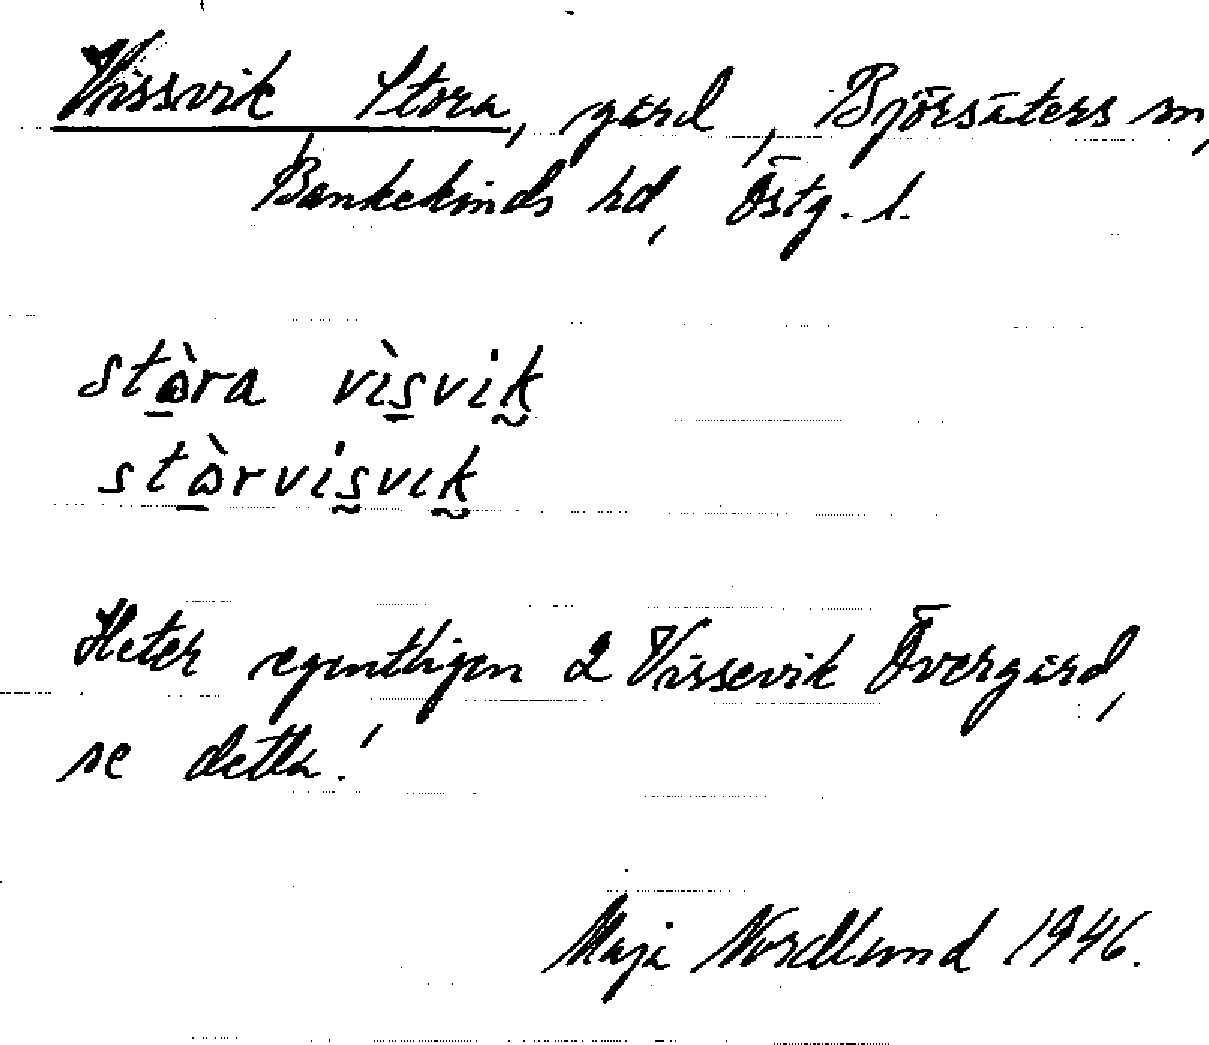 Vissvik Stora, gård, Björsäters sn,
Bankekinds hd, Östg. l.
stὼra vìsvik
stὼrvisvık
Heter egentligen 2 Vissevik Övergård,
se detta!
Maja Nordlund 1946.